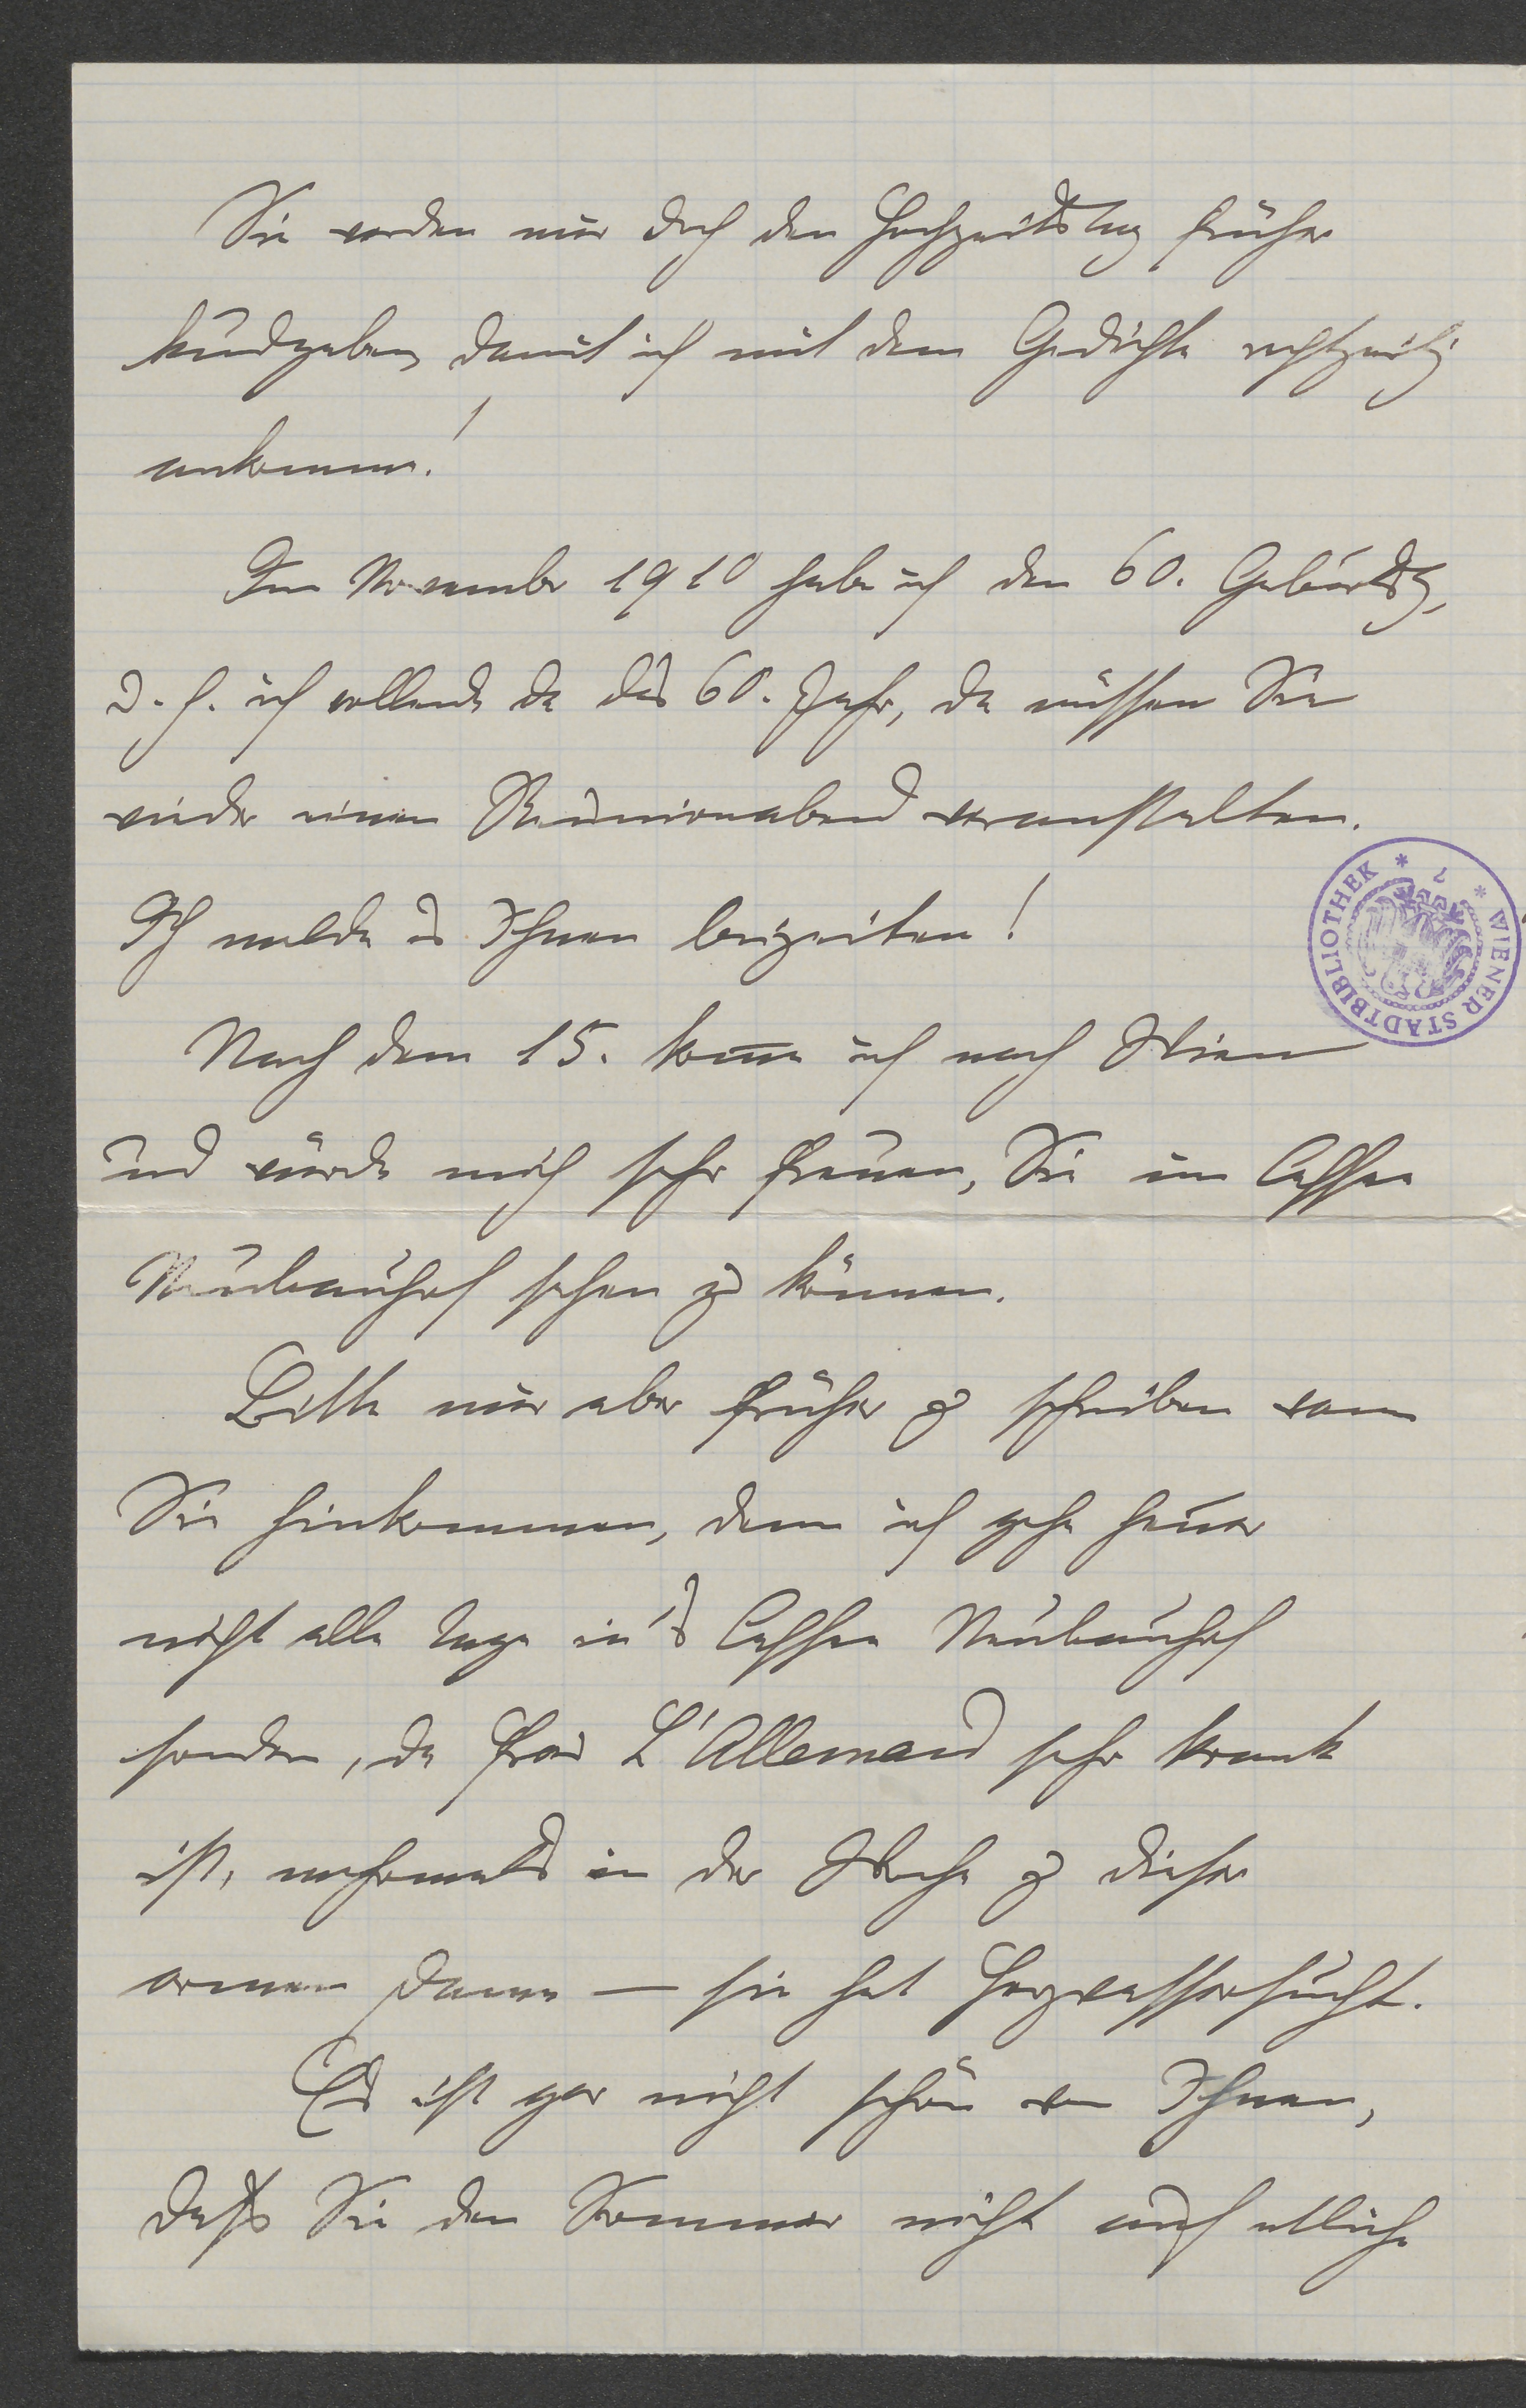 Sie werden mir doch den Hochzeitstag früher
kundgeben, damit ich mit dem Gedichte rechtzeitig
ankomme!
Im November 1910 habe ich den 60. Geburtstg,
d. h. ich vollende da das 60. Jahr, da müssen Sie
wieder einen Reunionabend veranstalten.
Ich melde es Ihnen beizeiten!
Nach dem 15. kome ich nach Wien
und würde mich sehr freuen, Sie im Caffee
Neubauhof sehen zu können.
Bitte mir aber früher zu schreiben wann
Sie hinkommen, denn ich gehe heuer
nicht alle Tage in's Caffee Neubauhof
sondern, da Frau L'Allemand sehr krank
ist, mehrmals in der Woche zu dieser
armen Dame — sie hat Herzwassersucht.
Es ist gar nicht schön von Ihnen,
daß Sie den Sommer nicht auch etliche
* WIENER STADTBIBLIOTHEK *